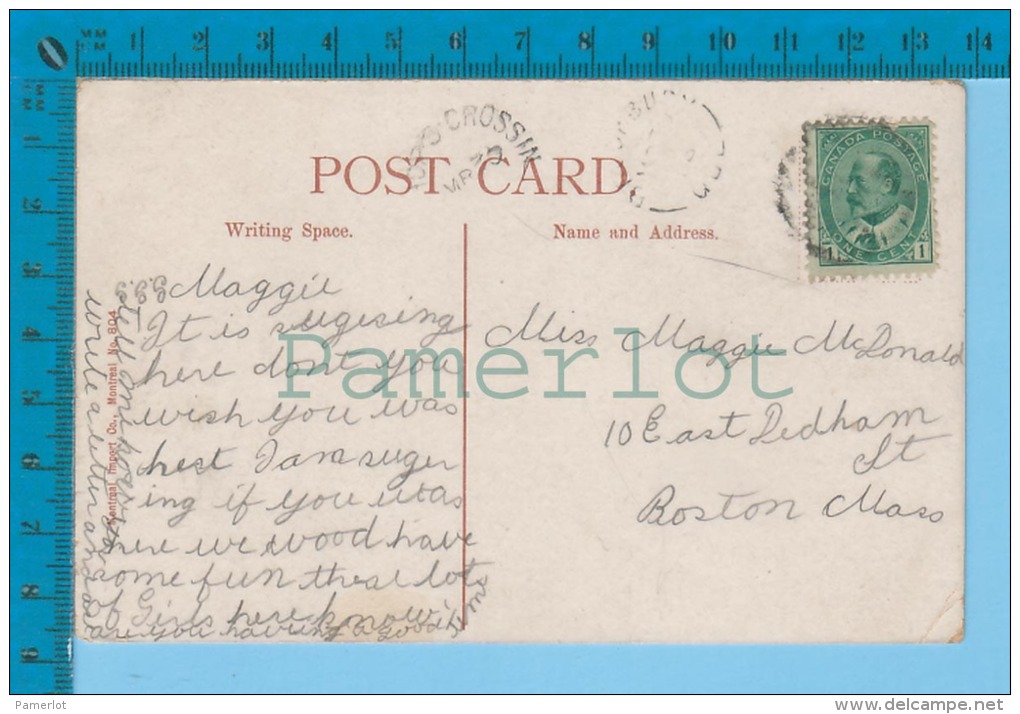 POST CARD
Writing Space.
Name and Address.
CROSSIN
CANADA POSTAGE
ONE CENT
1 1
Maggie
It is sugesing
here dont you
wish you was
here I am suger
ing if you was
here we wood have
some fun thear lots
of Girls here know
are you having a good
time
write a letter and
tell me how
Miss Maggie McDonald
10 East Dedham
St
Boston Mass
Montreal Import Co., Montreal No. 804
Pamerlot
MM
CM
1 2 3 4 5 6 7 8 9 10 11 12 13 14
MM
CM
1 2 3 4 5 6 7 8 9
Pamerlot
delcampe.net